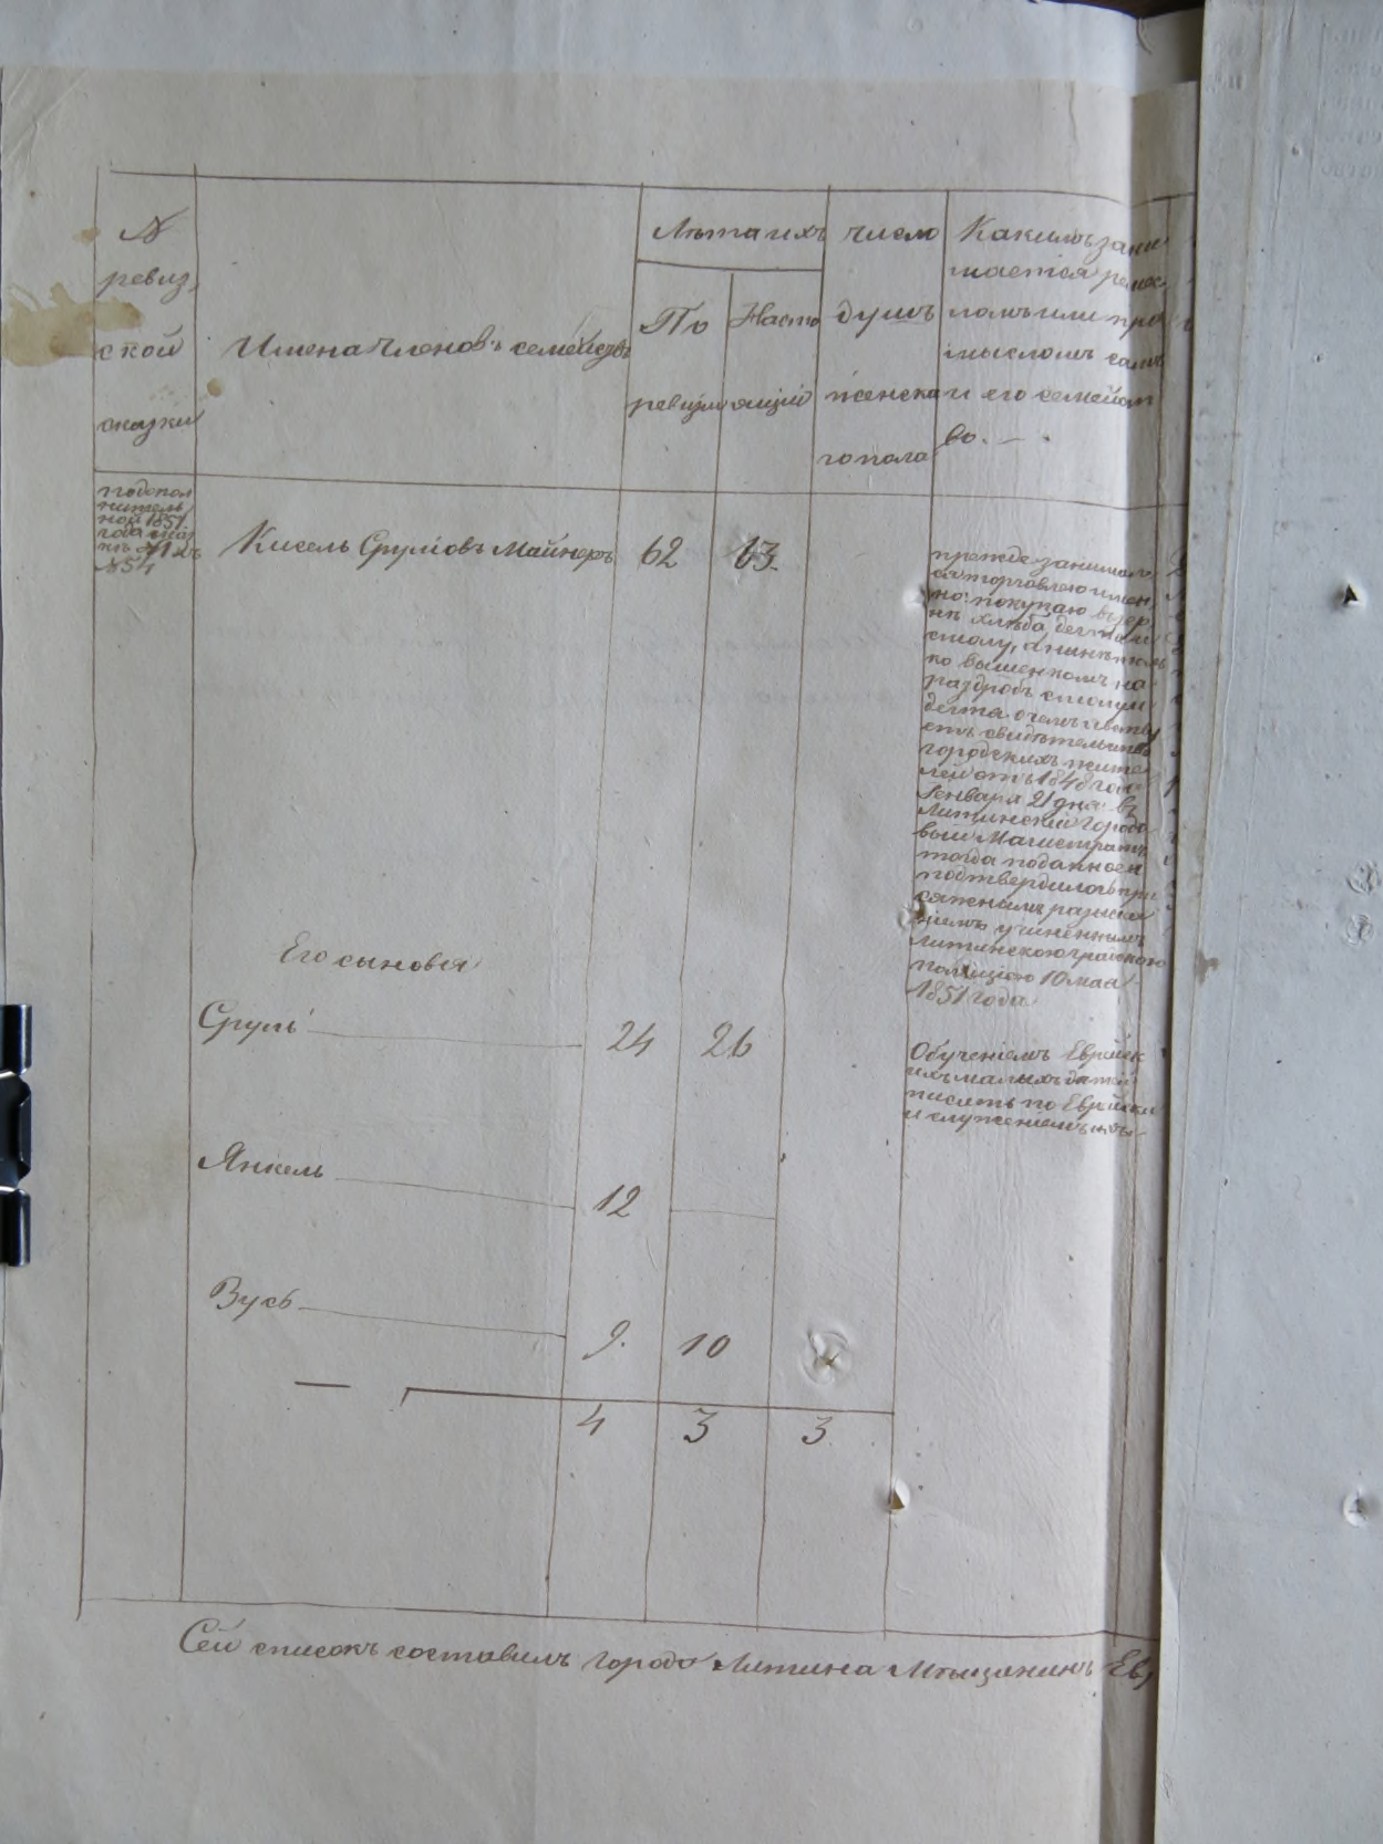 №
ревиз
ской
сказки
Имена членовъ семействъ
Лѣта ихъ
По
ревизіи
Насто
ящіи
число
душъ
женска
го пола
Какимъ зани
мается ремес
ломъ или про
мысломъ самъ
и его семейст
во.
подопол
нитель
ной 1851
года
№ 54
Кисель Сруліовъ Майнеръ 62 63.
прежде занимал
ся торговлею имен
но: покупаю
хлѣба дегтя и
смолу,
ко на
раздробъ смолы и
дегтя о чемъ
етъ свидѣтельство
городскихъ жите
лей отъ 1848 года
Генваря 21 дня въ
Литинскій Городо
вый Магистратъ
тогда поданное и
подтвердилось при
сяжнымъ
учиненнымъ
Литинскою градскою
полиціею 10 мая
1851 года
Его сыновья
Сруль 24 26
Обученіемъ Еврейск
ихъ малыхъ дѣтей
писать по Еврейски
и служеніемъ
Янкель 12
Вусь 9. 10
4 3 3
Сей списокъ составилъ города Литина Мѣщанинъ Ев